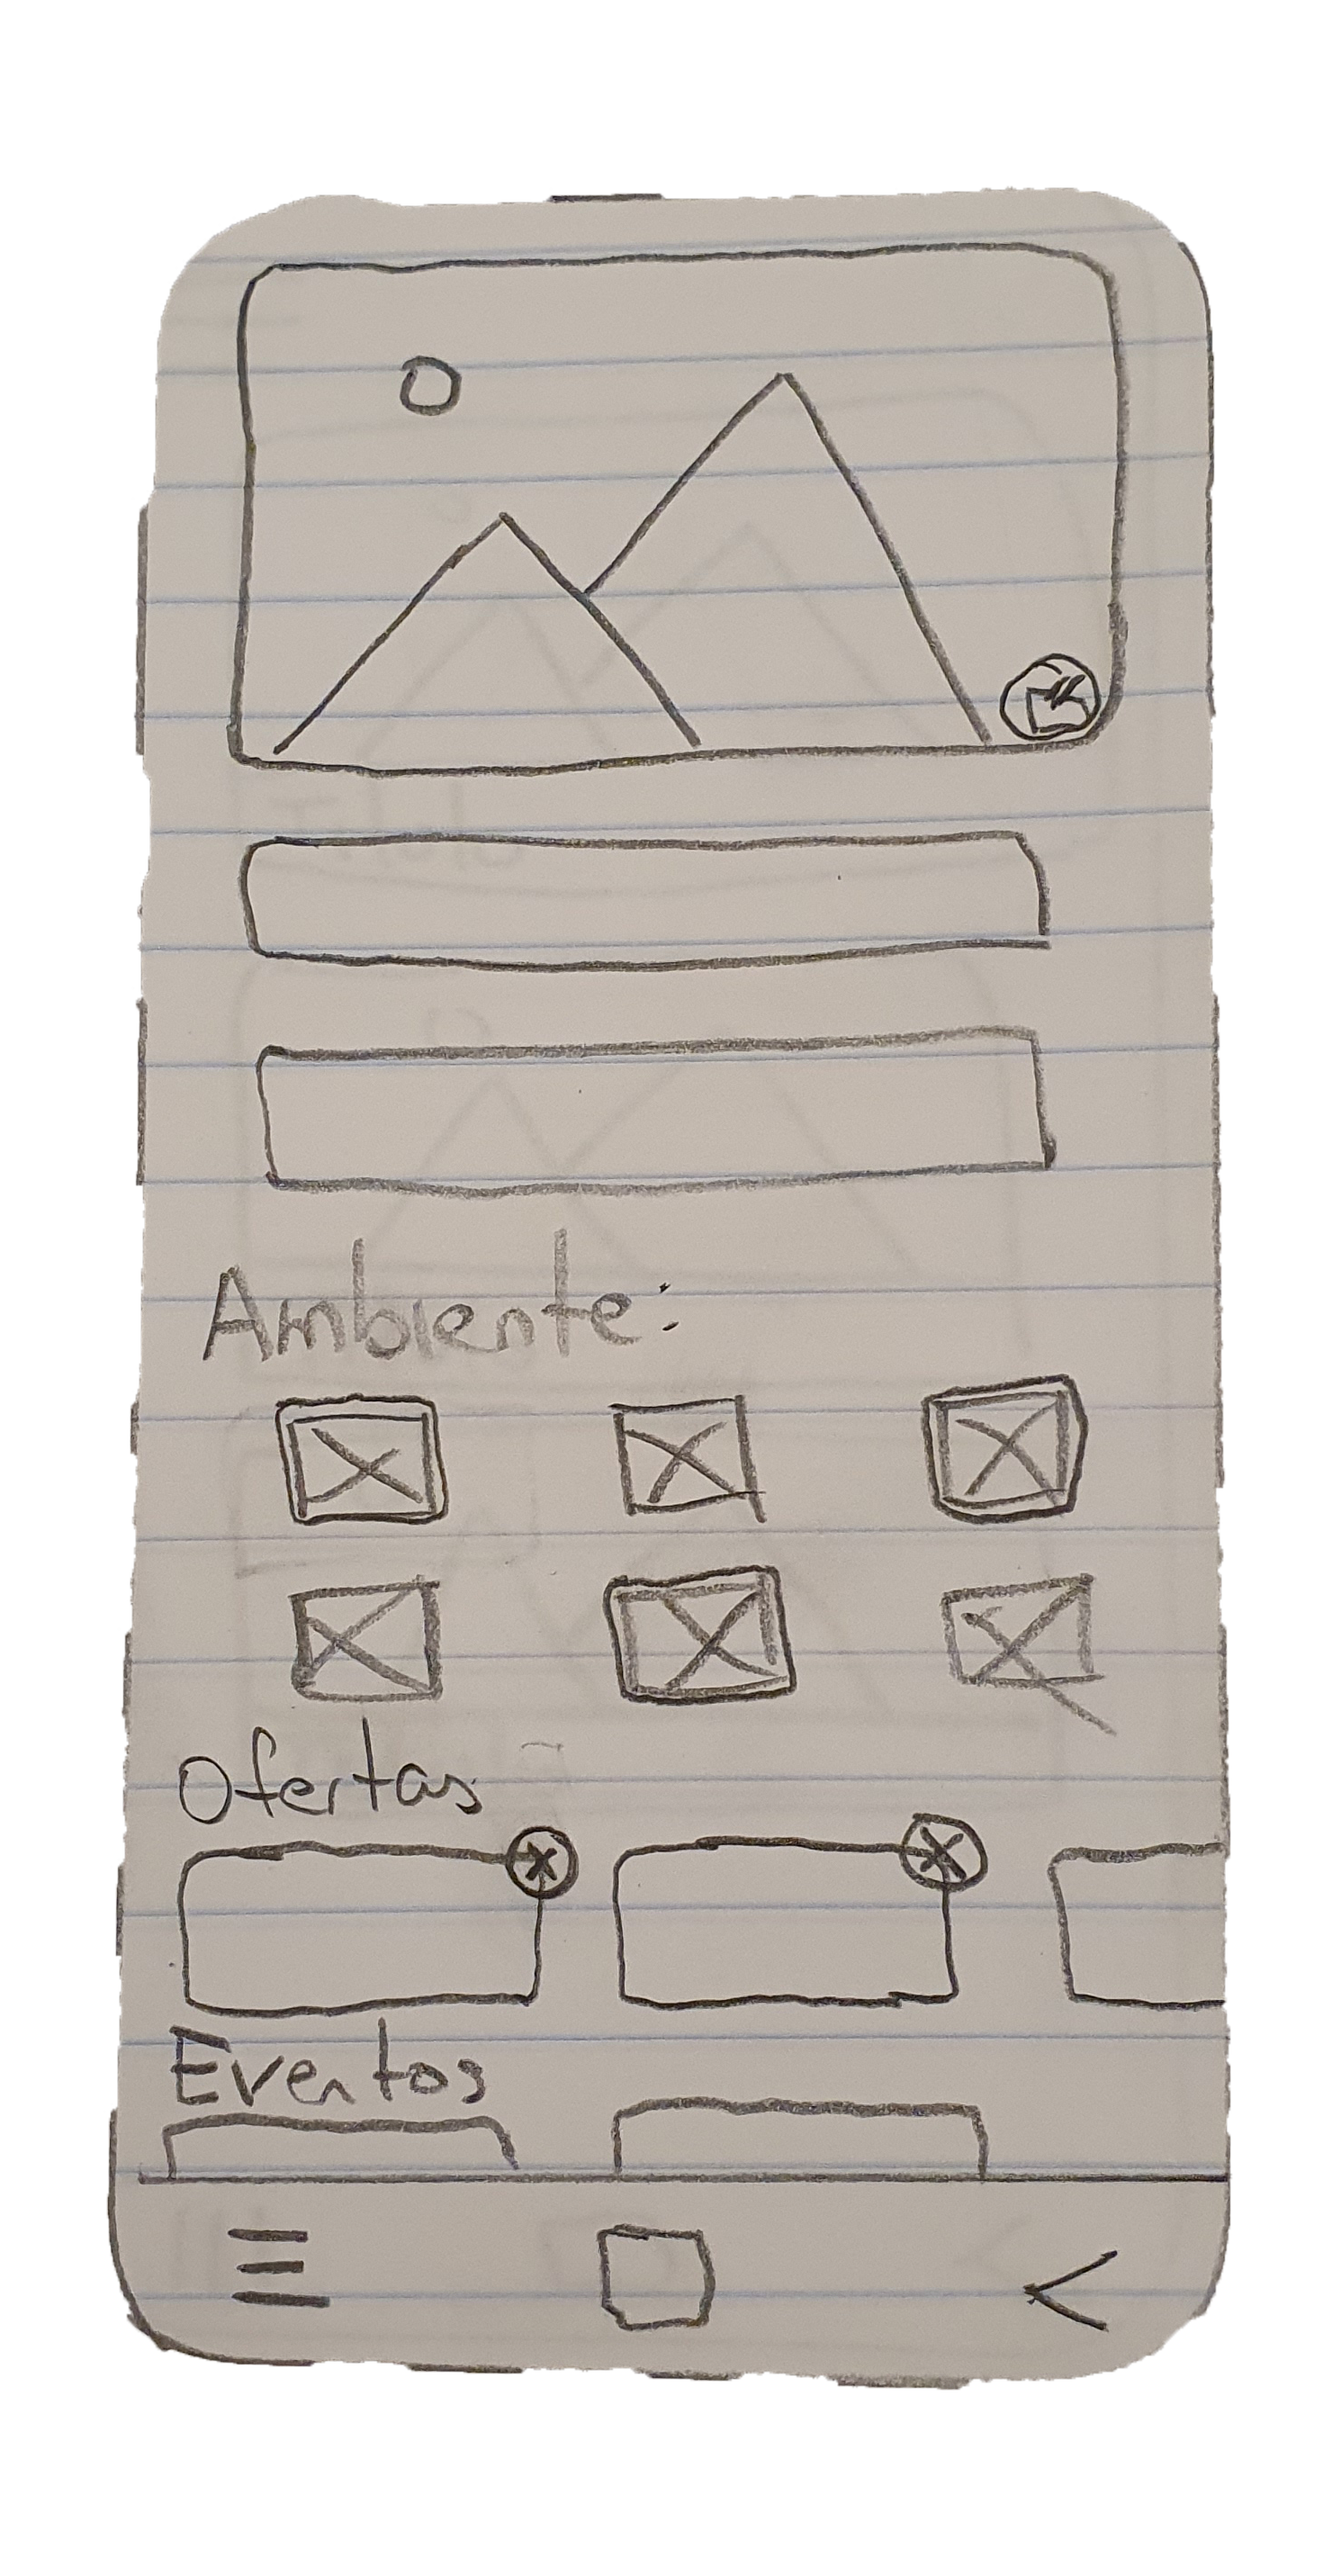 Ambiente:
Ofertas
Eventos